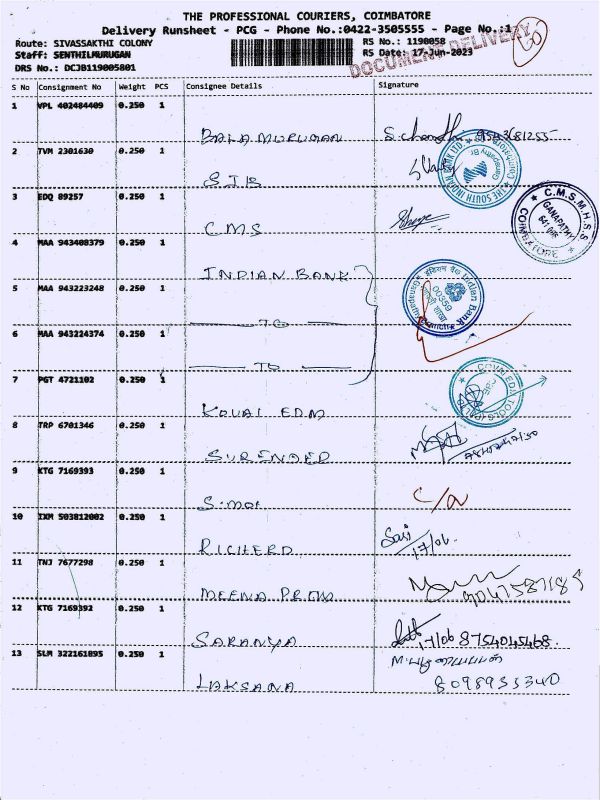 THE PROFESSIONAL COURIERS, COIMBATORE
Delivery Runsheet - PCG - Phone No.:0422-3505555 - Page No.:1
Route: SIVASSAKTHI COLONY
RS No.: 1190058
Staff: SENTHILMURUGAN
RS Date: 17-Jun-2023
DRS No.: DCJB119005801
DOCUMENT DELIVERY
S No Consignment No Weight PCS Consignee Details Signature
1 VPL 402484409 0.250 1
BALA MURUGAN
2 TVM 2301630 0.250 1
SIB
THE SOUTH INDIAN BANK LTD.
3 EDQ 89257 0.250 1
CMS
C.M.S.M.H.S.S
GANAPATHY
COIMBATORE
4 MAA 943408379 0.250 1
INDIAN BANK
5 MAA 943223248 0.250 1
TO
इंडियन बैंक Indian Bank
00359
6 MAA 943224374 0.250 1
TO
7 PGT 4721102 0.250 1
KOVAI EDM
8 TRP 6701346 0.250 1
SURENDED
9 KTG 7169393 0.250 1
C/A
10 IXM 503812002 0.250 1
RICHERD
Sasi
17/06.
11 TNJ 7677298 0.250 1
MEENA
12 KTG 7169392 0.250 1
SARANYA
17/06 8754045468.
13 SLM 322161895 0.250 1
LAKSANA
8098953340